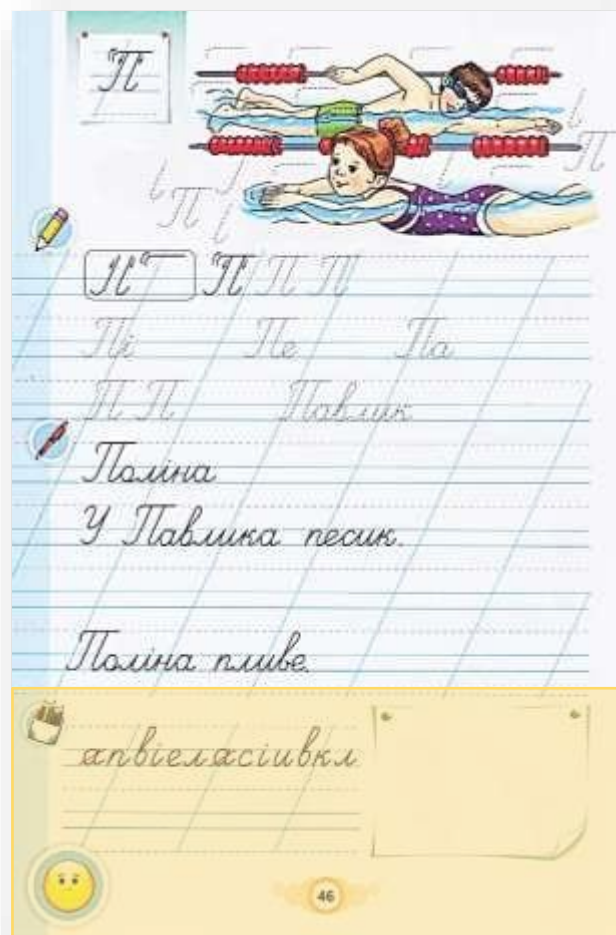 П
П П П
П П П П
Пі Пе Па
П П Павлик
Поліна
У Павлика песик.
Поліна пливе.
апвіеласіивкл
46